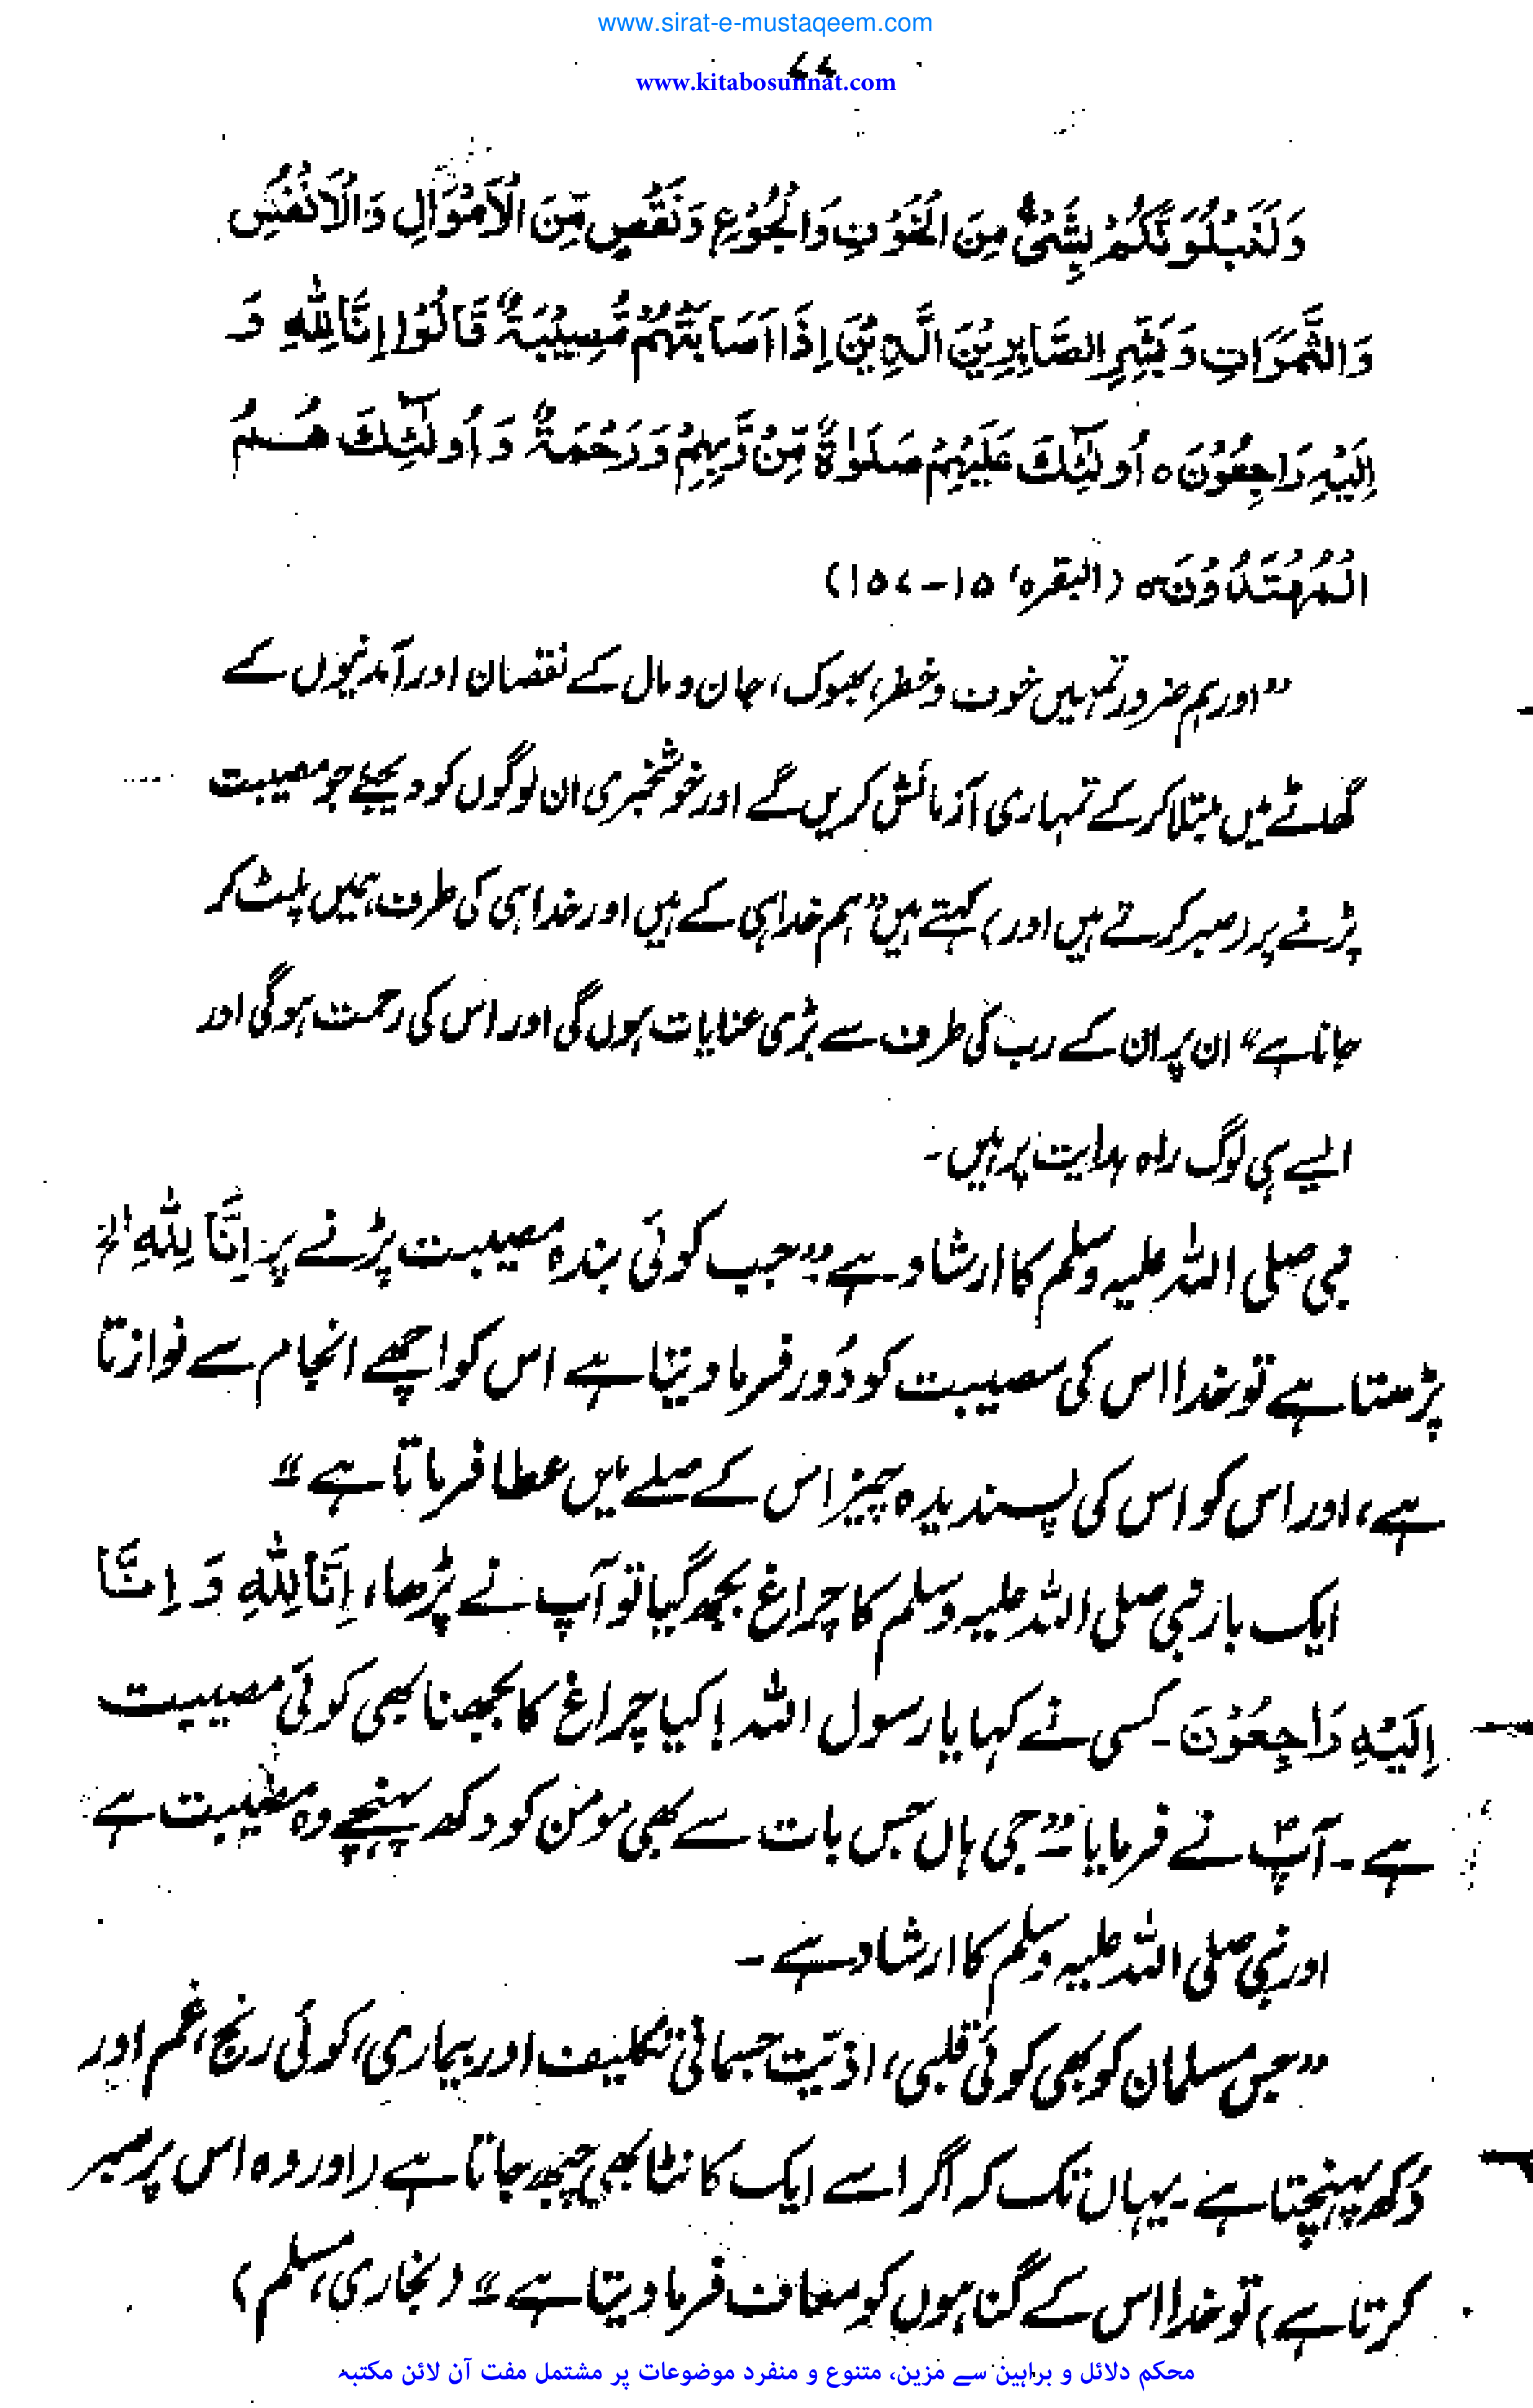 www.sirat-e-mustaqeem.com
۷۷
www.kitabosunnat.com
وَلَنَبْلُوَنَّكُمْ بِشَيْءٍ مِنَ الْخَوْفِ وَالْجُوْعِ وَنَقْصٍ مِّنَ الْاَمْوَالِ وَالْاَنْفُسِ
وَالثَّمَرَاتِ وَبَشِّرِ الصَّابِرِيْنَ الَّذِيْنَ اِذَا اَصَابَتْهُمْ مُّصِيْبَةٌ قَالُوْا اِنَّا لِلّٰهِ وَ
اِلَيْهِ رَاجِعُوْنَ ہ اُولٰٓئِكَ عَلَيْهِمْ صَلَوٰةٌ مِّنْ رَّبِهِمْ وَرَحْمَةٌ وَ اُولٰٓئِكَ هُمُ
الْمُهْتَدُوْنَ ہ (البقرہ، ۱۵-۱۵۷)
”اور ہم ضرور تمہیں خوف و خطر، بھوک، جان و مال کے نقصان اور آمدنیوں کے
گھاٹے میں مبتلا کر کے تمہاری آزمائش کریں گے اور خوشخبری ان لوگوں کو دیجئے جو مصیبت
پڑنے پر (صبر کرتے ہیں اور) کہتے ہیں ”ہم خدا ہی کے ہیں اور خدا ہی کی طرف ہمیں پلٹ کر
جانا ہے“ ان پر ان کے رب کی طرف سے بڑی عنایات ہوں گی اور اس کی رحمت ہو گی اور
ایسے ہی لوگ راہ ہدایت پر ہیں۔
نبی صلی اللہ علیہ وسلم کا ارشاد ہے: ”جب کوئی بندہ مصیبت پڑنے پر اِنَّا لِلّٰهِ الخ
پڑھتا ہے تو خدا اس کی مصیبت کو دُور فرما دیتا ہے اس کو اچھے انجام سے نوازتا
ہے، اور اس کو اس کی پسندیدہ چیز اس کے صلے میں عطا فرماتا ہے“
ایک بار نبی صلی اللہ علیہ وسلم کا چراغ بجھ گیا تو آپ نے پڑھا، اِنَّا لِلّٰهِ وَ اِنَّا
اِلَيْهِ رَاجِعُوْنَ۔ کسی نے کہا یا رسول اللہ! کیا چراغ کا بجھنا بھی کوئی مصیبت
ہے۔ آپؐ نے فرمایا۔ ”جی ہاں جس بات سے بھی مومن کو دکھ پہنچے وہ مصیبت ہے
اور نبی صلی اللہ علیہ وسلم کا ارشاد ہے۔
”جس مسلمان کو بھی کوئی قلبی، اذیّت جسمانی تکلیف اور بیماری، کوئی رنج، غم اور
دُکھ پہنچتا ہے۔ یہاں تک کہ اگر اسے ایک کانٹا بھی چبھ جاتا ہے (اور وہ اس پر صبر
کرتا ہے) تو خدا اس کے گناہوں کو معاف فرما دیتا ہے“ (بخاری، مسلم)
محکم دلائل و براہین سے مزین، متنوع و منفرد موضوعات پر مشتمل مفت آن لائن مکتبہ